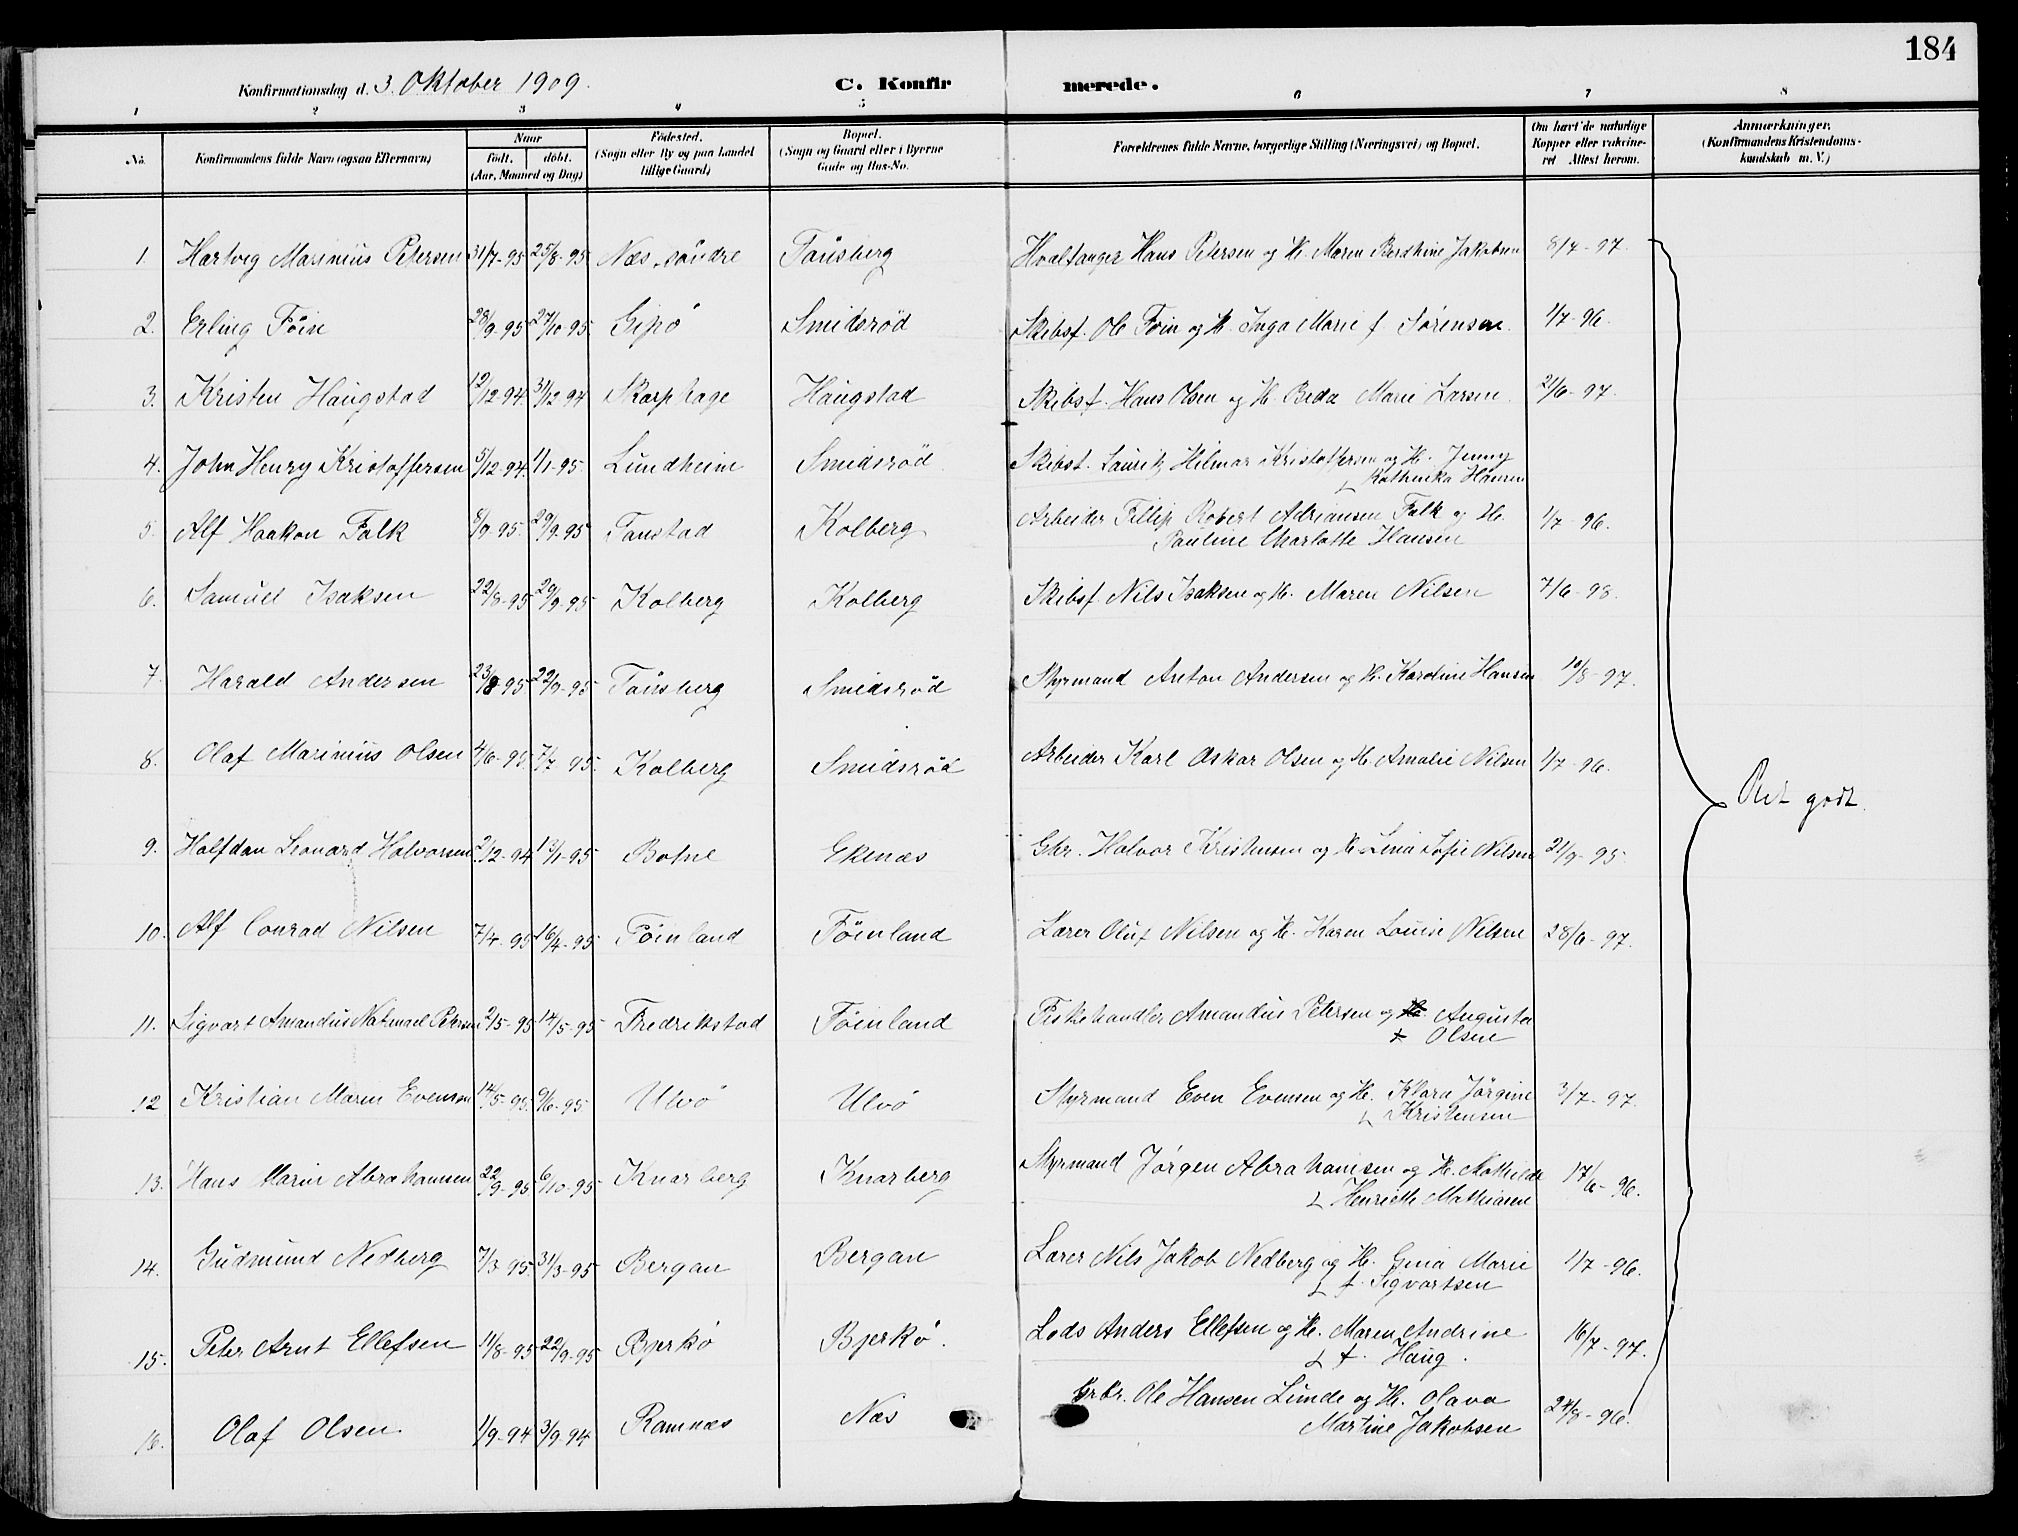 184
Konfirmationsdag d. 3. Oktober 1909. C. Konfirmerede.
1 2 3 4 5 6 7 8
No. Konfirmandens fulde Navn (ogsaa Efternavn) Naar født. døbt. (Aar, Maaned og Dag) Fødested. (Sogn eller By og paa Landet tillige Gaard) Bopæl. (Sogn og Gaard eller i Byerne Gade og Hus-No. Forældrenes fulde Navne, borgerlige Stilling (Næringsvei) og Bopæl. Om havt de naturlige Kopper eller vakcineret Attest herom. Anmærkninger. (Konfirmandens Kristendomskundskab m. V.)
1. Hartvig Marinius Petersen 31/7-95 25/8-95 Næs, søndre Tønsberg Hvalfanger Hans Petersen og H. Maren Berthine Jakobsen 8/4-97.
2. Erling Föin 28/9-95 27/10-95 Gipö Smidsröd Skibsf. Ole Foin og H. Inga Marie f Sørensen. 1/7-96.
3. Kristen Haugstad 12/12-94. 31/12 94 Skarphage Haugstad Skibsf. Hans Olsen og H. Beda Marie Larsen 21/6-97.
4. John Henry Kristoffersen 5/12-94. 1/1-95. Lundheim Smidsröd Skibsf. Lauritz Hilmar Kristoffersen og H. Jenny
Kathinka Hansen
5. Alf Haakon Falk 8/9-95. 29/9-95 Tanstad Kolberg Arbeider Fillip Robert Adriansen Falk og H. 1/7-96.
Pauline Charlotte Hansen
6. Samuel Isaksen 22/8-95 29/9-95 Kolberg Kolberg Skibsf. Nils Isaksen og H. Maren Nilsen 7/6-98.
7. Harald Andersen 23/8-95 22/9-95 Tønsberg Smidsröd Styrmand Anton Andersen og H. Karoline Hansen 10/8-97.
8. Olaf Marinius Olsen 4/6-95. 7/7 95. Kolberg Smidsröd Arbeider Karl Oskar Olsen og H. Amalie Nilsen 1/7-96.
Ret godt.
9. Halfdan Leonard Halvorsen 2/12-94 13/1-95 Botne Ekenæs Gbr. Halvor Kristensen og H. Lina Sofie Nilsen 21/9-95.
10. Alf Conrad Nilsen 7/4-95 16/4-95 Föinland Föinland Lærer Oluf Nilsen og H. Karen Louise Nilsen 28/6-97.
11. Sigvart Amandus Natanael Petersen 2/5-95 14/5-95 Fredrikstad Föinland Fiskehandler Amandus Petersen og H. Augusta
Olsen
12 Kristian Marin Evensen 14/5-95. 9/6-95 Ulvö Ulvö Styrmand Even Evensen og H. Klara Jörgine 3/7-97.
Kristensen
13. Hans Marin Abrahamsen 22/9-95 6/10-95 Knarberg Knarberg Styrmand Jörgen Abrahamsen og H. Mathilde 17/6-96.
Henriette Mathiasen
14. Gudmund Nedberg 7/3-95. 31/3-95 Bergan Bergan Lærer Nils Jakob Nedberg og H. Gina Marie 1/7-96.
f. Sigvartsen
15. Peter Arnt Ellefsen 11/8-95 22/9-95 Bjerkö Bjerkö. Lods Anders Ellefsen og H. Maren Andrine 16/7-97.
f. Haug.
16. Olaf Olsen. 1/9-94 3/9-94 Ramnæs Næs Grbr. Ole Hansen Lunde og H. Olava 24/8-96.
Martine Jakobsen